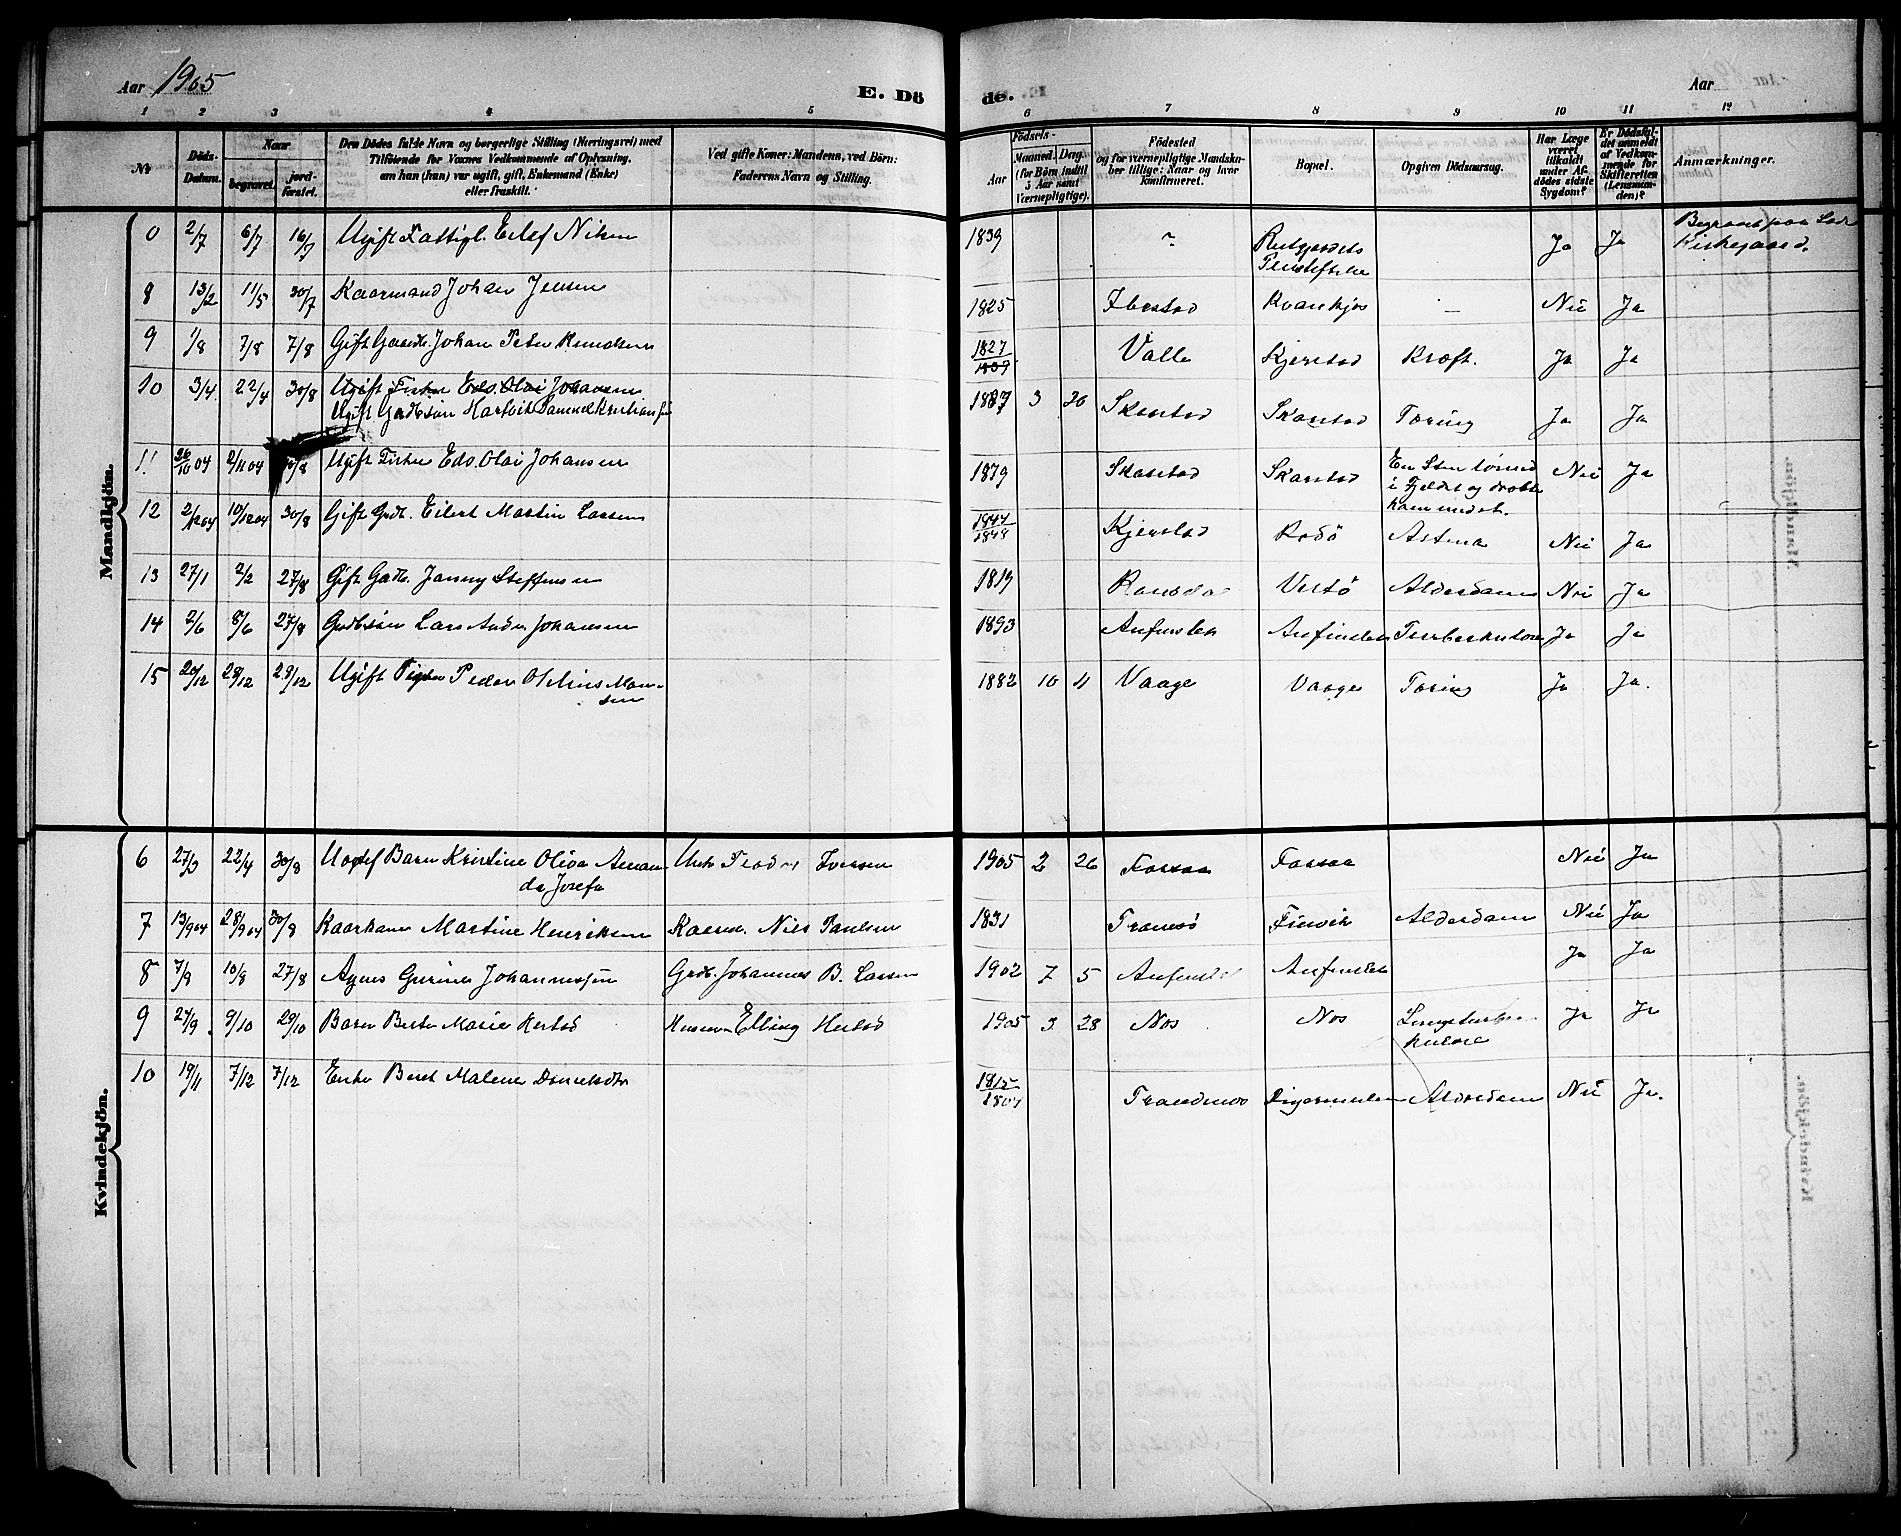 Aar 1905 E. Dö de. Aar
1 2 3 4 5 6 7 8 9 10 11 12
Nr. Döds-Datum. Naar begravet. jord-fæstet. Den Dödes fulde Navn og borgerlige Stilling (Næringsvei) med Tilföiende for Voxnes Vedkommende af Oplysning, om han (hun) var ugift, gift, Enkemand (Enke) eller fraskilt. Ved gifte Koner: Mandens, ved Börn: Faderens Navn og Stilling. Födsels- Aar Maaned. Dag. (for Börn indtil 5 Aar samt Værnepligtige). Födested og for værnepligtige Mandskaber tillige: Naar og hvor konfirmeret. Bopæl. Opgiven Dödsaarsag. Har Læge været tilkaldt under Afdödes sidste Sygdom? Er Dödsfaldet anmeldt af Vedkommende for Skifteretten (Lensmanden)? Anmærkninger.
Mandkjön.
0 2/7 6/7 16/7 Ugift Fattigl. Eilef Nilsen 1839 Ja Ja Begravet paa
Kirkegaard.
8 13/2 11/5 30/7 Kaarmand Johan Jensen 1825 Ibestad Kvankjos — Nei Ja
9 1/8 7/8 7/8 Gift Gaardb. Johan Peter Knudsen 1827 Valle Kjerstad Kræft. Ja Ja
10 3/4 22/4 30/8 Ugift Fisker Eds. Olai Johansen
Ugift Grdbsøn Hartvik Samuel Kristiansen 1887 3 20 Skarstad Skarstad Tæring Ja Ja
11 26/10 04 2/11 04 30/8 Ugift Fisker Eds. Olai Johansen 1879 Skarstad Skarstad En Sten løsned
i Fjeldet og dræbte
ham med et. Nei Ja
12 2/12 04 10/12 04 30/8 Gift Grdb. Eilert Martin Larsen 1847/1848 Kjerstad Rodö Astma Nei Ja
13 27/1 2/2 27/8 Gift Gadb. Janny Steffensen 1819 Vestö Alderdom Nei Ja
14 2/6 8/6 27/8 Grdbsøn Lars Andr. Johansen 1893 Anfinslet Anfinslet Tuberkulose Ja Ja
15 20/12 28/12 28/12 Ugift Fisker Peder Olelius Mon-
sen 1882 10 4 Vaage Vaage Tæring Ja Ja.
Kvindekjön.
6 27/3 22/4 30/8 Uægtef Barn Kristine Oliva Aman-
da Josefa Ungk. Iversen 1905 2 26 Forsaa Forsaa Nei Ja
7 13/9 04 28/9 04 30/8 Kaarkone Martine Henriksen Kaarm. Nils Paulsen 1831 Tranøsö Finvik Alderdom Nei Ja
8 7/8 10/8 27/8 Agnes Gurine Johannessen Grdb. Johannes B. Larsen 1902 7 5 Anfinslet Anfinslet Ja Ja
9 27/9 9/10 29/10 Barn Berta Marie Hestad Husmn Elling Hestad 1905 3 28 Nos Nos Lungetuber-
kulose Ja Ja
10 19/11 7/12 7/12 Enke Beret Malene Danielsdtr 1815/1807 Trondenes Digermulen Alderdom Nei Ja.